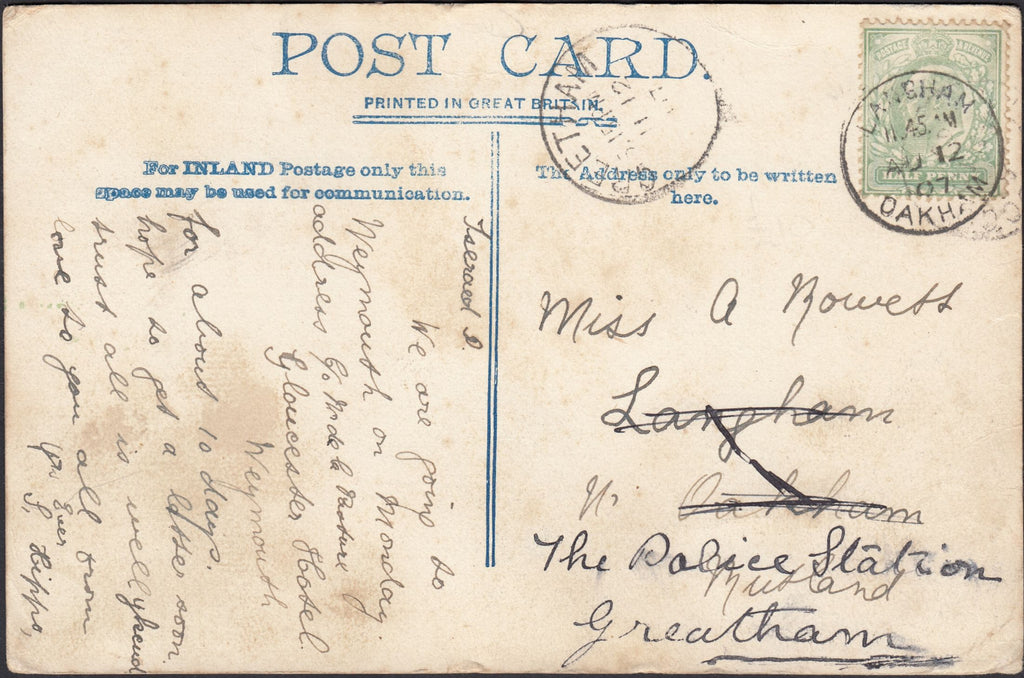 POST CARD.
PRINTED IN GREAT BRITAIN.
For INLAND Postage only this
space may be used for communication.
The Address only to be written
here.
POSTAGE
HALF PENNY
LANGHAM
11.45 AM
AU 12
07
OAKHAM
GREETHAM
We are going to
Weymouth on Monday.
address
Gloucester Hotel
Weymouth
for about 10 days.
hope to get a letter soon.
trust all is well
love to you all from
Yrs Ever
S. Hipps,
Miss A Rowett
Langham
Nr Oakham
The Police Station
Rutland
Greatham